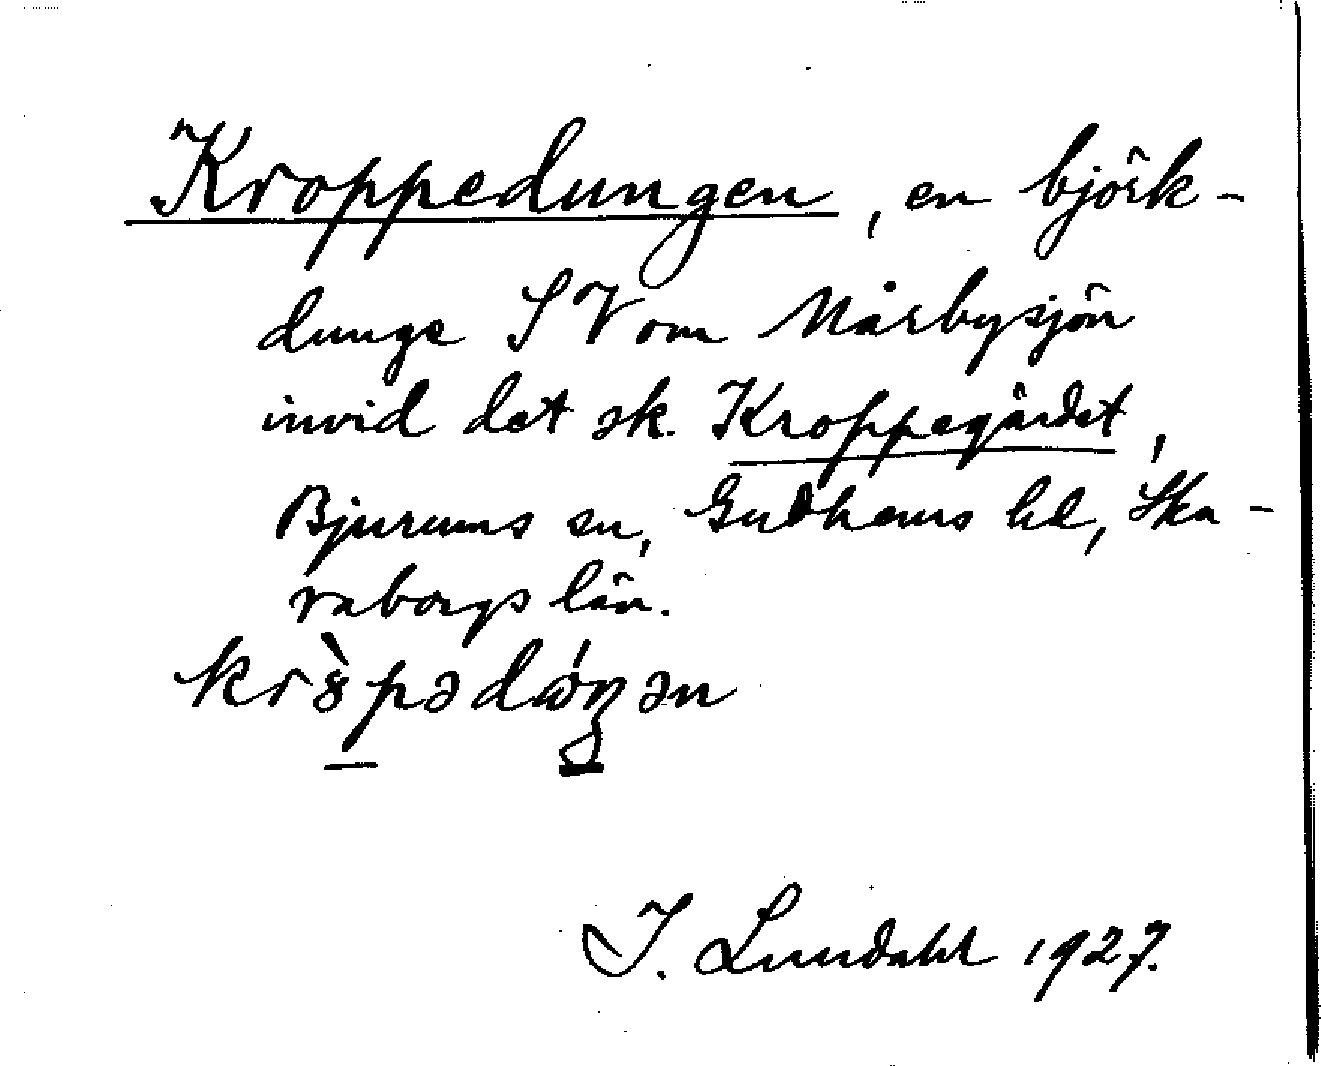 Kroppedungen, en björk-
dunge SV om Mårbysjön
invid det sk. Kroppegärdet,
Bjurums sn, Gudhems hd, Ska-
raborgs län.
I. Lundahl 1927.